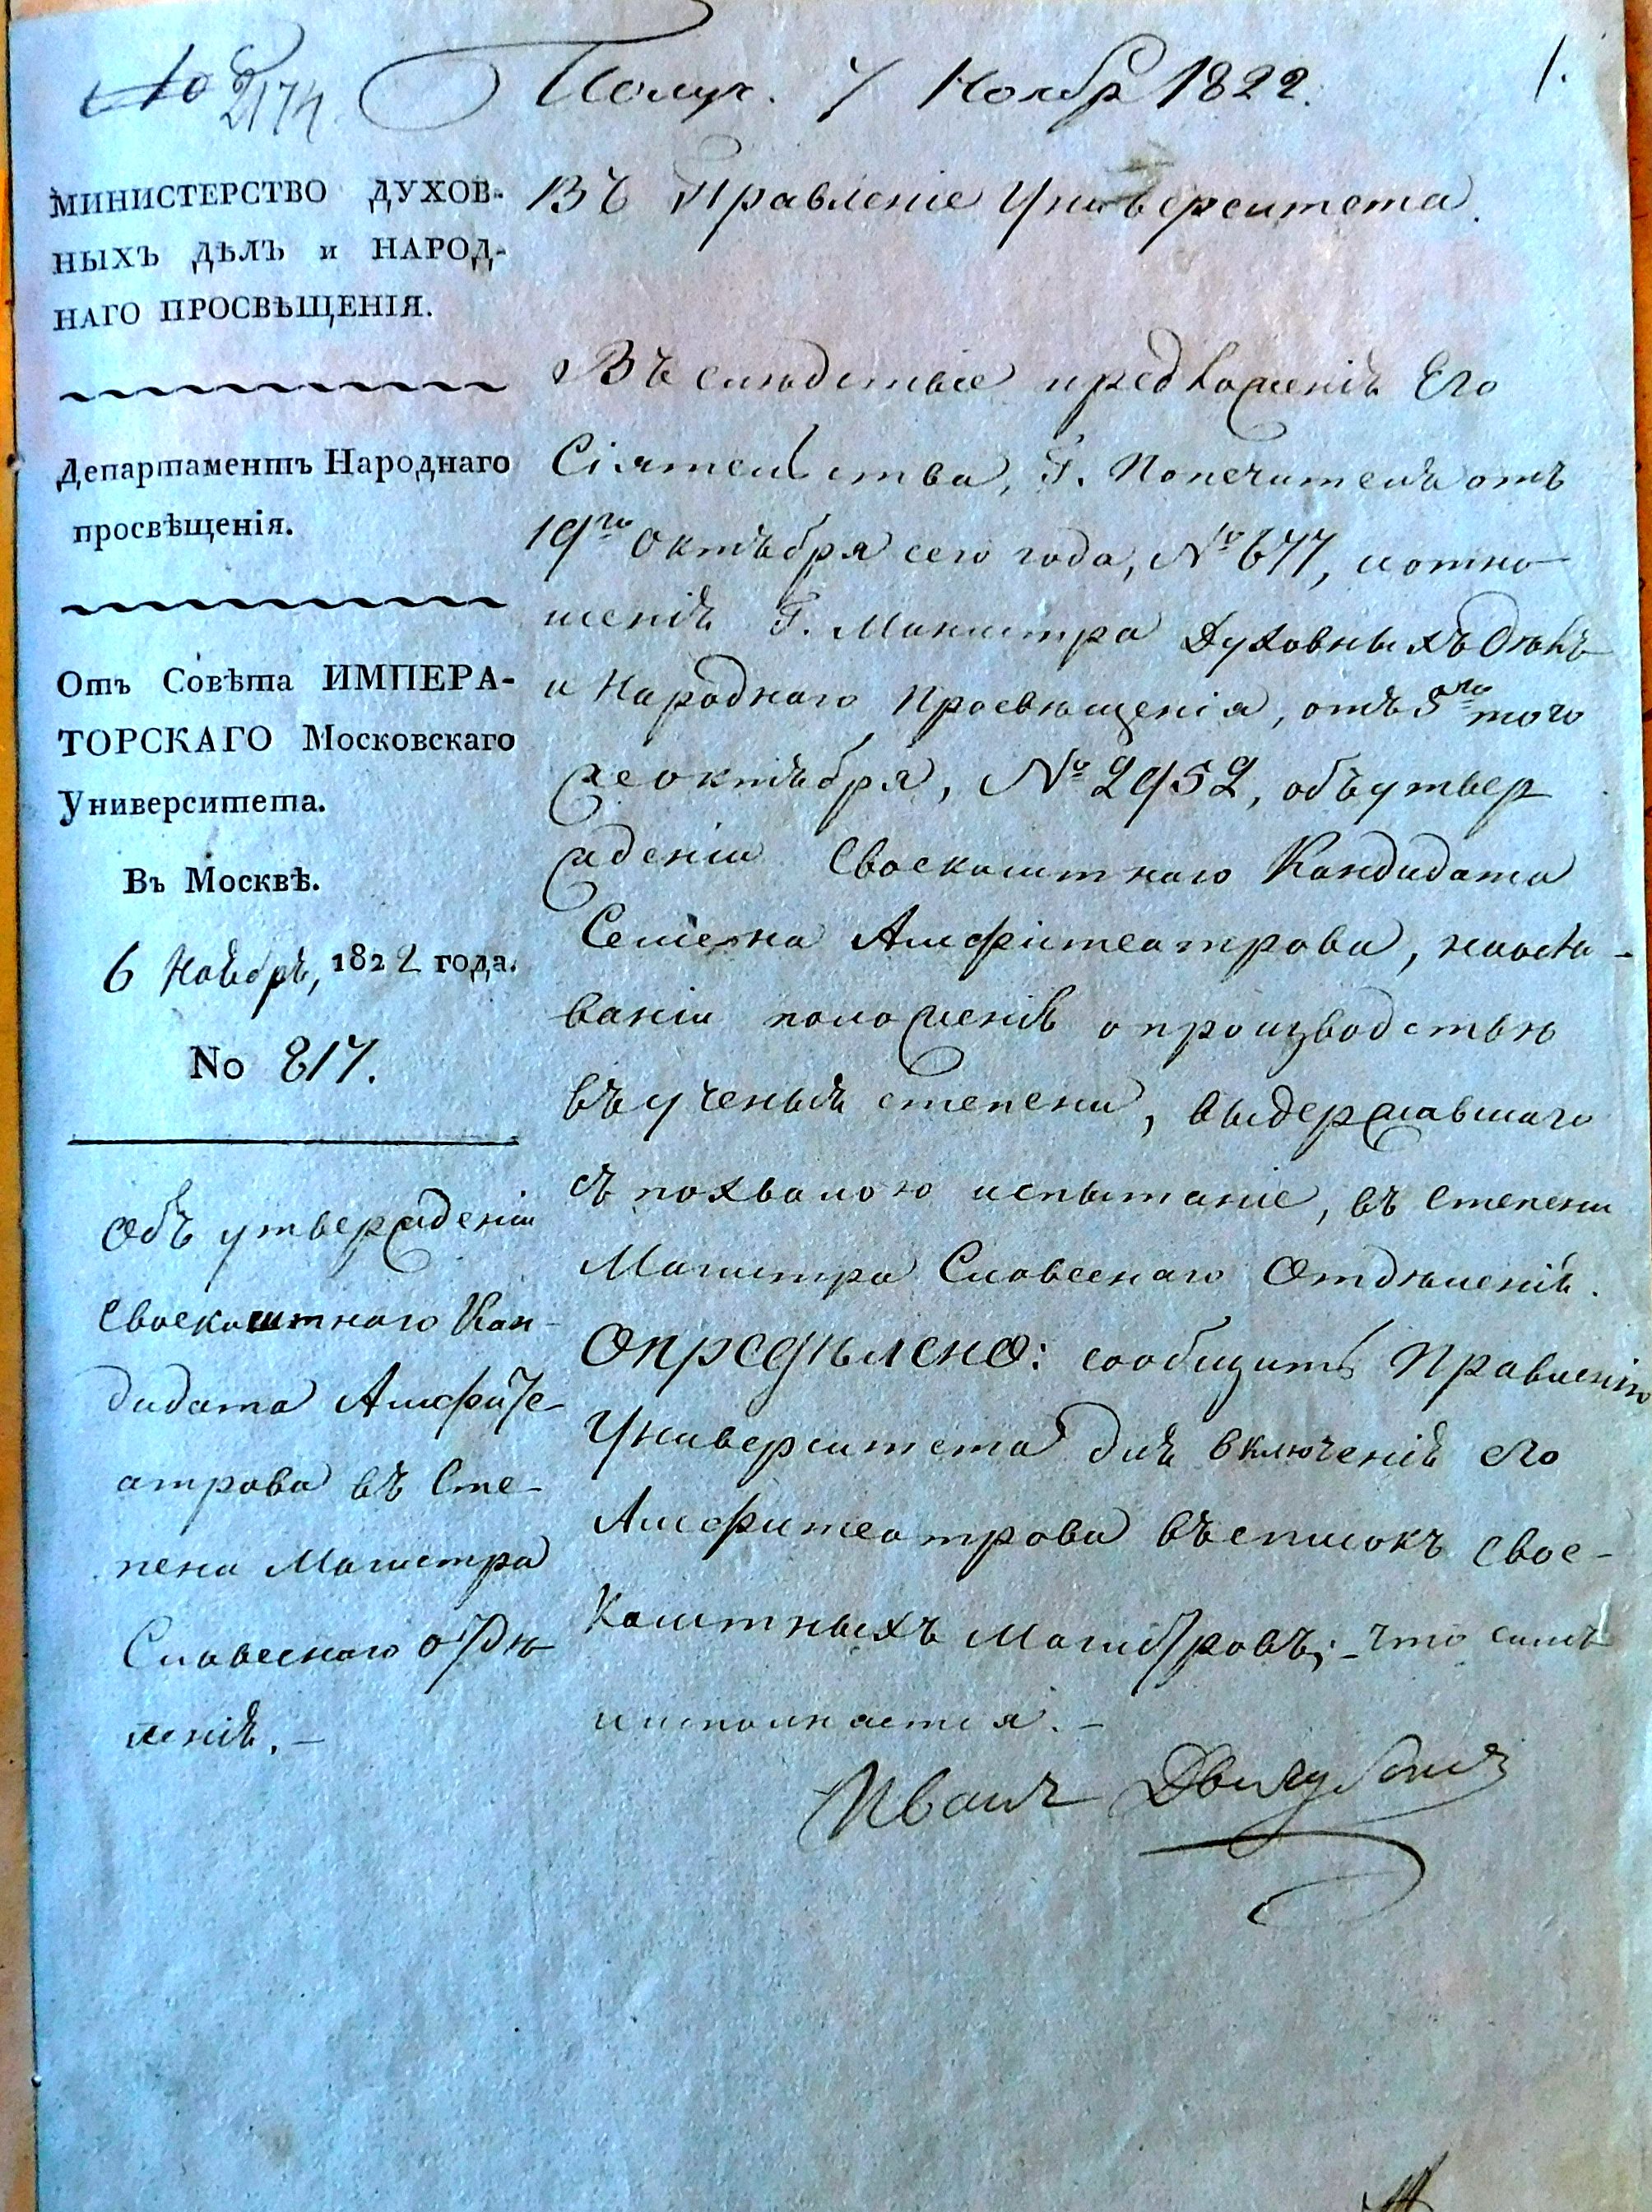 No 2174. Получ. 7 Ноябр 1822.
1.
МИНИСТЕРСТВО ДУХОВ-
НЫХЪ ДѢЛЪ и НАРОД-
НАГО ПРОСВѢЩЕНІЯ.
Департаментъ Народнаго
просвѣщенія.
Отъ Совѣта ИМПЕРА-
ТОРСКАГО Московскаго
Университета.
Въ Москвѣ.
6 Ноября, 1822 года.
No 817.
Объ утвержденіи
Своекоштнаго Кан-
дидата Амфите-
атрова въ Сте-
пени Магистра
Словеснаго отдѣ-
ленія. –
Въ Правленіе Университета.
Въ слѣдствіе предложенія Его
Сіятельства, Г. Попечителя отъ
19го Октября сего года, № 677, и отно-
шенія Г. Министра Духовныхъ дѣлъ
и Народнаго Просвѣщенія, отъ 5го того
же октября, № 2952, объ утвер
жденіи Своекоштнаго Кандидата
Семена Амфітеатрова, на осно-
ваніи положенія о производствѣ
въ ученыя степени, выдержавшаго
съ похвалою испытаніе, въ степени
Магистра Словеснаго Отдѣленія.
Опредѣлено: сообщить Правленію
Университета для включенія его
Амфитеатрова въ списокъ свое-
коштныхъ Магистровъ; – что симъ
и исполняется. –
Иванъ Двигубскій